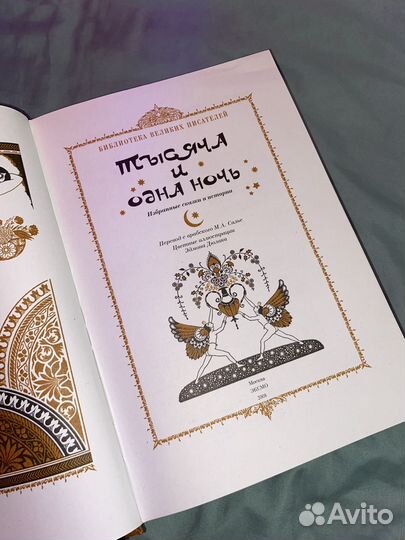 БИБЛИОТЕКА ВЕЛИКИХ ПИСАТЕЛЕЙ
ТЫСЯЧА
И
ОДНА НОЧЬ
Избранные сказки и истории
Перевод с арабского М.А. Салье
Цветные иллюстрации
Эдмона Дюлака
Москва
ЭКСМО
Avito